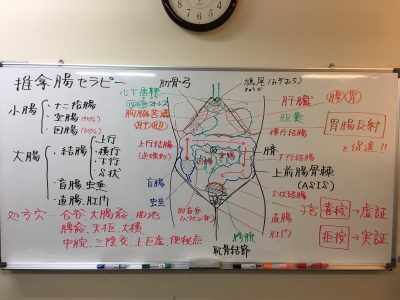 推拿腸セラピー
小腸
・十二指腸
・空腸(40%)
・回腸(60%)
大腸
・結腸
・上行
・横行
・下行
・S状
・盲腸 虫垂
・直腸、肛門
処方穴…合谷、大腸兪、曲池
脾兪、天枢、大横
中脘、三陰交、上巨虚、便秘点
肋骨弓
心下痞鞕
胸脇苦満
上行結腸
盲腸
虫垂
回盲弁
恥骨結節
鳩尾(みぞおち)
肝臓
脾 胃
胆嚢
横行結腸
胃腸反射
を促進!!
臍
下行結腸
上前腸骨棘
(ASIS)
S状結腸
子宮
直腸
肛門
膀胱
喜按→虚証
拒按→実証